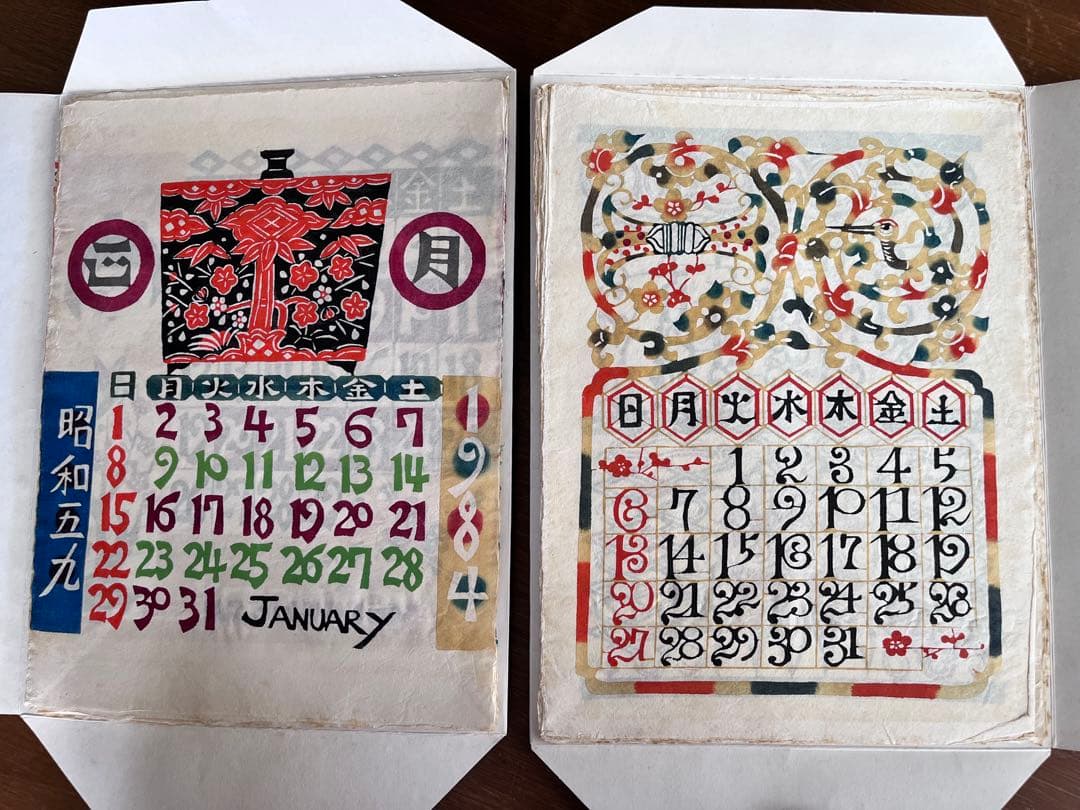 正 月
日 月 火 水 木 金 土
1 2 3 4 5 6 7
8 9 10 11 12 13 14
15 16 17 18 19 20 21
22 23 24 25 26 27 28
29 30 31 JANUARY
昭和五九
1984
日 月 火 水 木 金 土
1 2 3 4 5
6 7 8 9 10 11 12
13 14 15 16 17 18 19
20 21 22 23 24 25 26
27 28 29 30 31